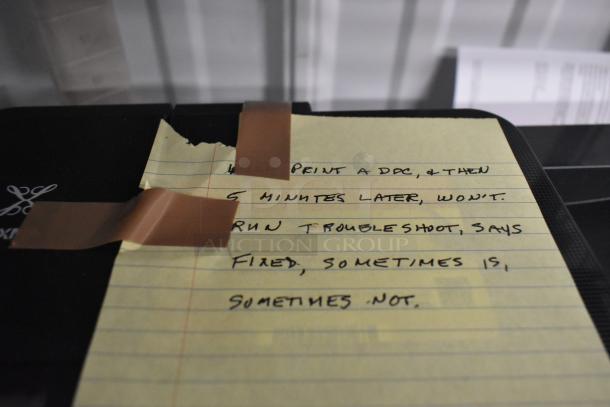 PRINT A DOC, & THEN
5 MINUTES LATER, WON'T.
RUN TROUBLESHOOT, SAYS
AUCTION GROUP
FIXED, SOMETIMES IS,
SOMETIMES NOT.